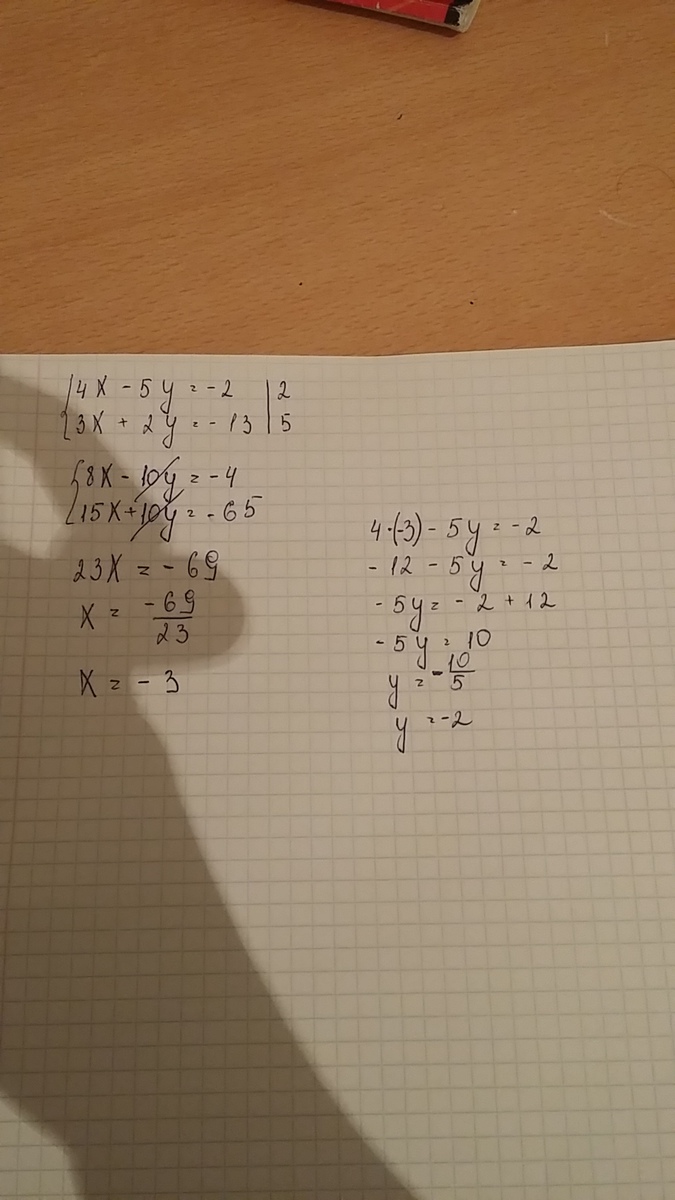 4x - 5y = -2 | 2
3x + 2y = -13 | 5
8x - 10y = -4
15x + 10y = -65
23x = -69
x = -69/23
x = -3
4·(-3) - 5y = -2
-12 - 5y = -2
-5y = -2 + 12
-5y = 10
y = -10/5
y = -2